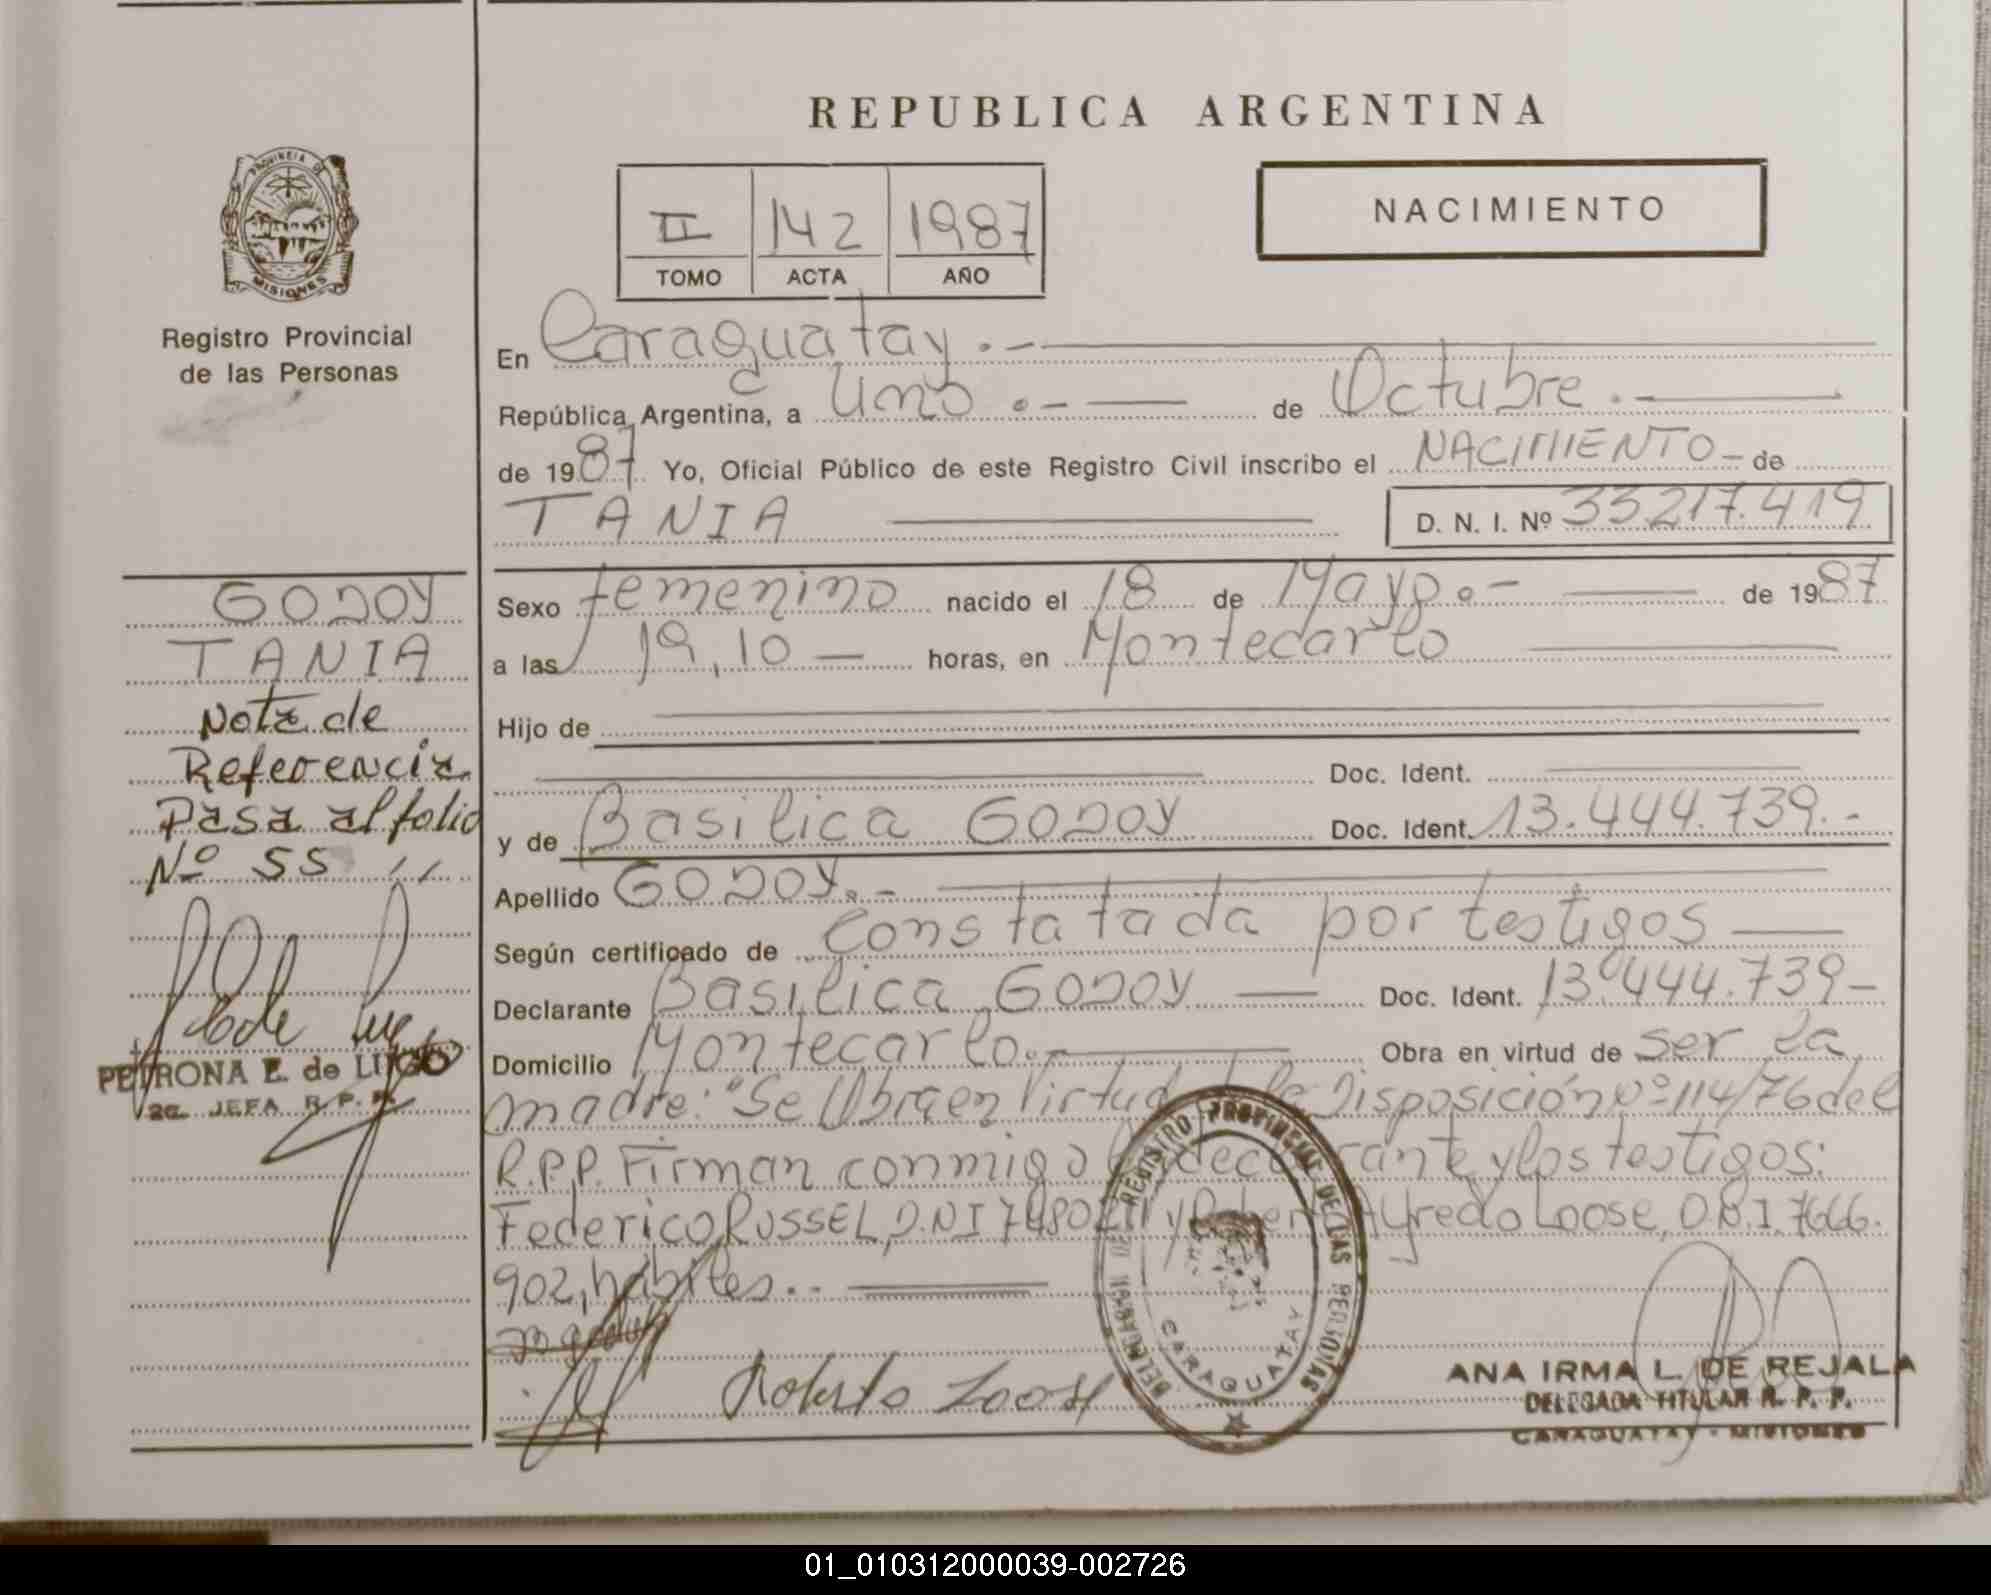 REPUBLICA ARGENTINA
PROVINCIA DE MISIONES
Registro Provincial
de las Personas
II 142 1987
TOMO ACTA AÑO
NACIMIENTO
En Caraguatay.-
República Argentina, a uno.- de Octubre.-
de 1987. Yo, Oficial Público de este Registro Civil inscribo el NACIMIENTO - de
TANIA D. N. I. Nº 33.217.419
Sexo femenino nacido el 18 de Mayo.- de 1987
a las 19,10 - horas, en Montecarlo
Hijo de
Doc. Ident.
y de Basilica GODOY Doc. Ident. 13.444.739.-
Apellido GODOY.-
Según certificado de Constatada por testigos
Declarante Basilica GODOY Doc. Ident. 13.444.739-
Domicilio Montecarlo.- Obra en virtud de ser la
madre: "Se Obra en Virtud la Disposición Nº 114/76 del
R.P.P. Firman conmigo declarante y los testigos:
Federico RUSSEL, D.N.I y Alfredo Loose, D.N.I. 7666.
902, hábiles..
Roberto Loose
GODOY
TANIA
Nota de
Referencia
Pasa al folio
Nº 55
PETRONA E. de LUGO
2a. JEFA R. P. P.
REGISTRO PROVINCIAL DE LAS PERSONAS
DELEGACION
CARAGUATAY
ANA IRMA L. DE REJALA
DELEGADA TITULAR R. P. P.
CARAGUATAY - MISIONES
01_010312000039-002726